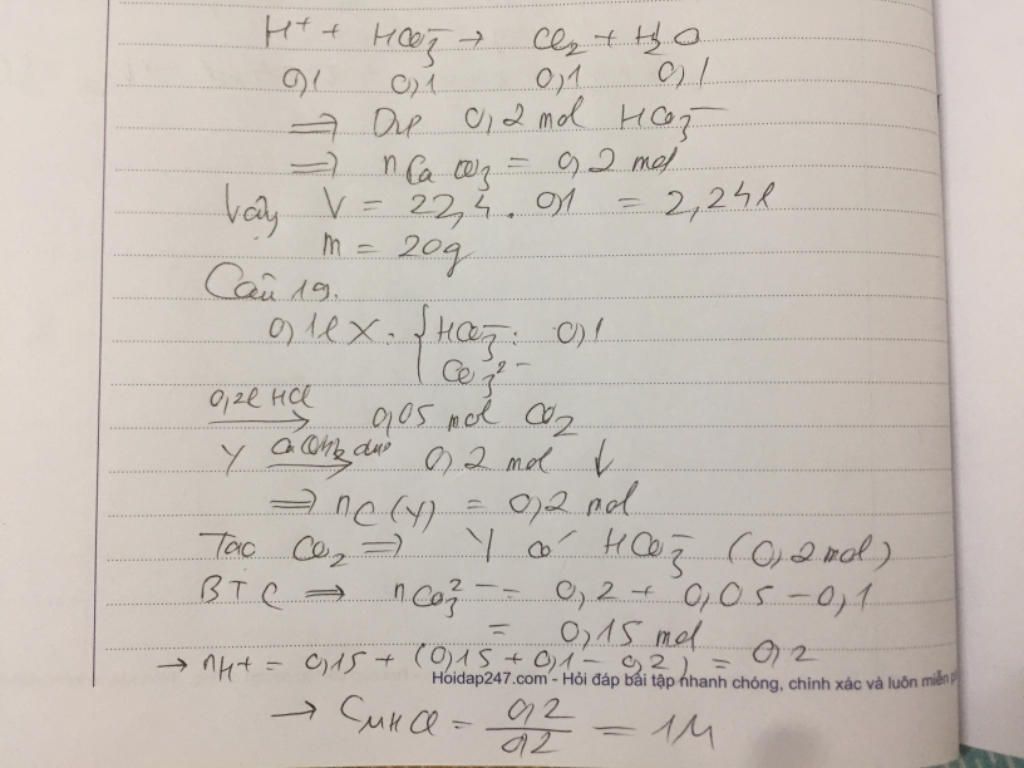 H⁺ + HCO₃⁻ → CO₂ + H₂O
0,1 0,1 0,1 0,1
⇒ Dư 0,2 mol HCO₃⁻
⇒ nCaCO₃ = 0,2 mol
Vậy V = 22,4 . 0,1 = 2,24l
m = 20g
Câu 19.
0,1l X: { HCO₃⁻: 0,1
CO₃²⁻
0,2l HCl → 0,05 mol CO₂
Y Ca(OH)₂ dư → 0,2 mol ↓
⇒ nC(Y) = 0,2 mol
Tạo CO₂ ⇒ Y có HCO₃⁻ (0,2mol)
BTC ⇒ nCO₃²⁻ = 0,2 + 0,05 - 0,1
= 0,15 mol
→ nH⁺ = 0,15 + (0,15 + 0,1 - 0,2) = 0,2
Hoidap247.com - Hỏi đáp bài tập nhanh chóng, chính xác và luôn miễn p
→ CMHCl = 0,2/0,2 = 1M